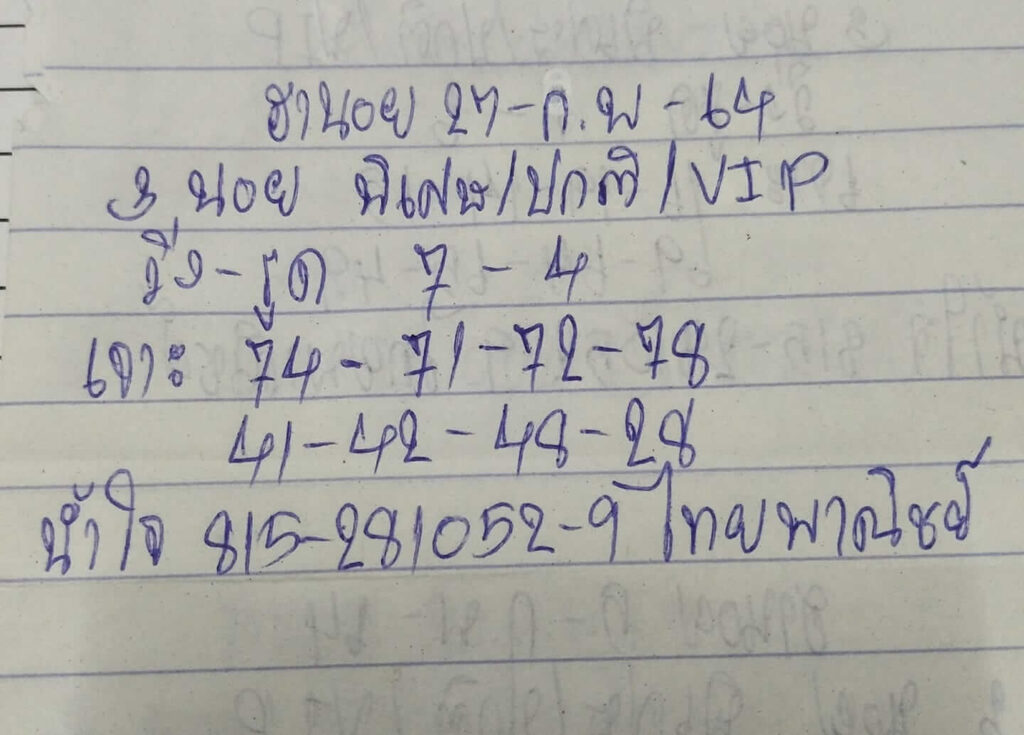 ฮานอย 27-ก.พ-64
3 นอย พิเศษ/ปกติ/VIP
วิ่ง-รูด 7-4
เจาะ 74-71-72-78
41-42-48-28
น้ำใจ 815-281052-9 ไทยพาณิชย์